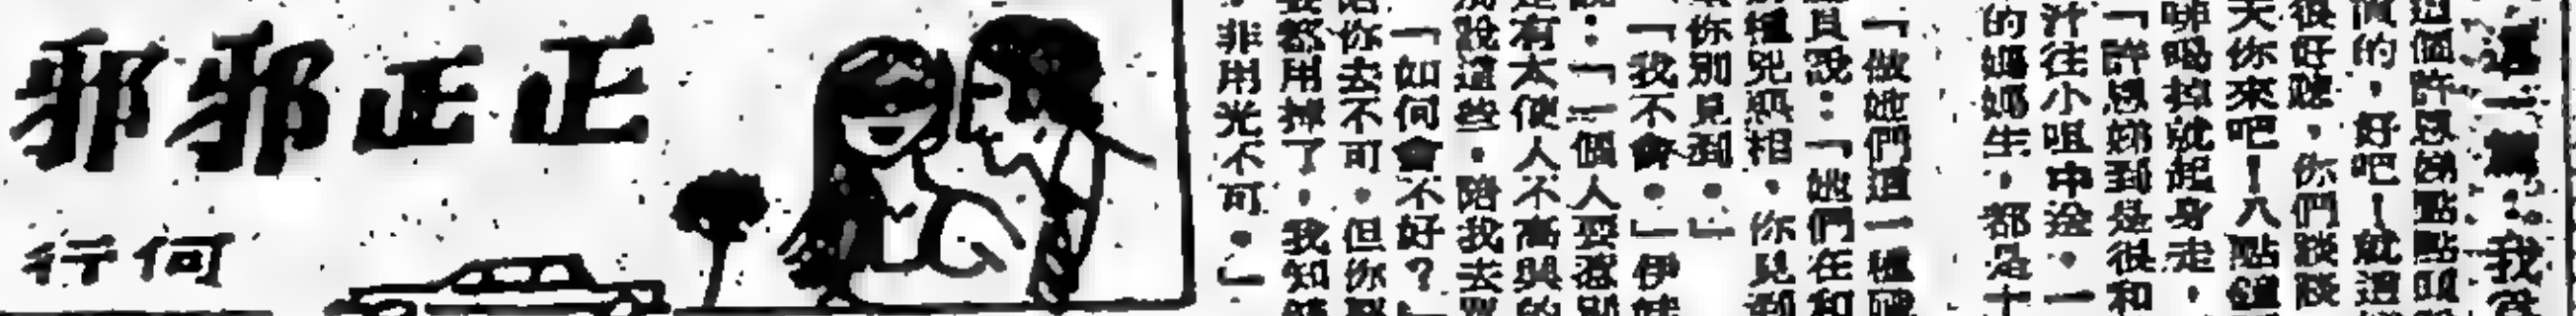 正正邪邪
何行
我
這個許恩娣點點頭
的，好吧！就這
很好聽，你們談談
天你來吧！八點鐘
喝掉就起身走，
「許恩娣到是很和
汁往小咀中送。一
的媽媽生，都是十
「做她們這一種
貝說：「她們在和
種兇惡相，你見到
你別見到。」
「我不會。」伊娃
說：「一個人要
是有太使人不高興的
說這些，陪我去買
「如何會不好？」
你去不可。但你
都用掉了，我知
非用光不可。」